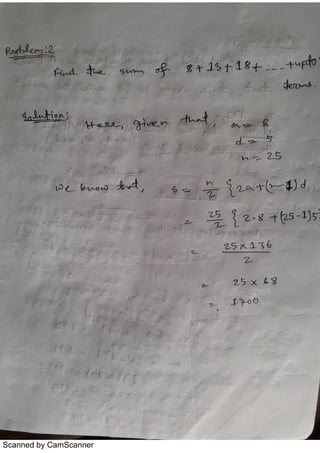 Problem:2
Find the sum of 8+13+18+ --- + upto
terms.
Solution:
Here, given that, a = 8
d = 5
n = 25
We know that, S = n/2 {2a+(n-1)d
= 25/2 {2·8 +(25-1)5
= 25×136/2
= 25 × 68
= 1700
Scanned by CamScanner